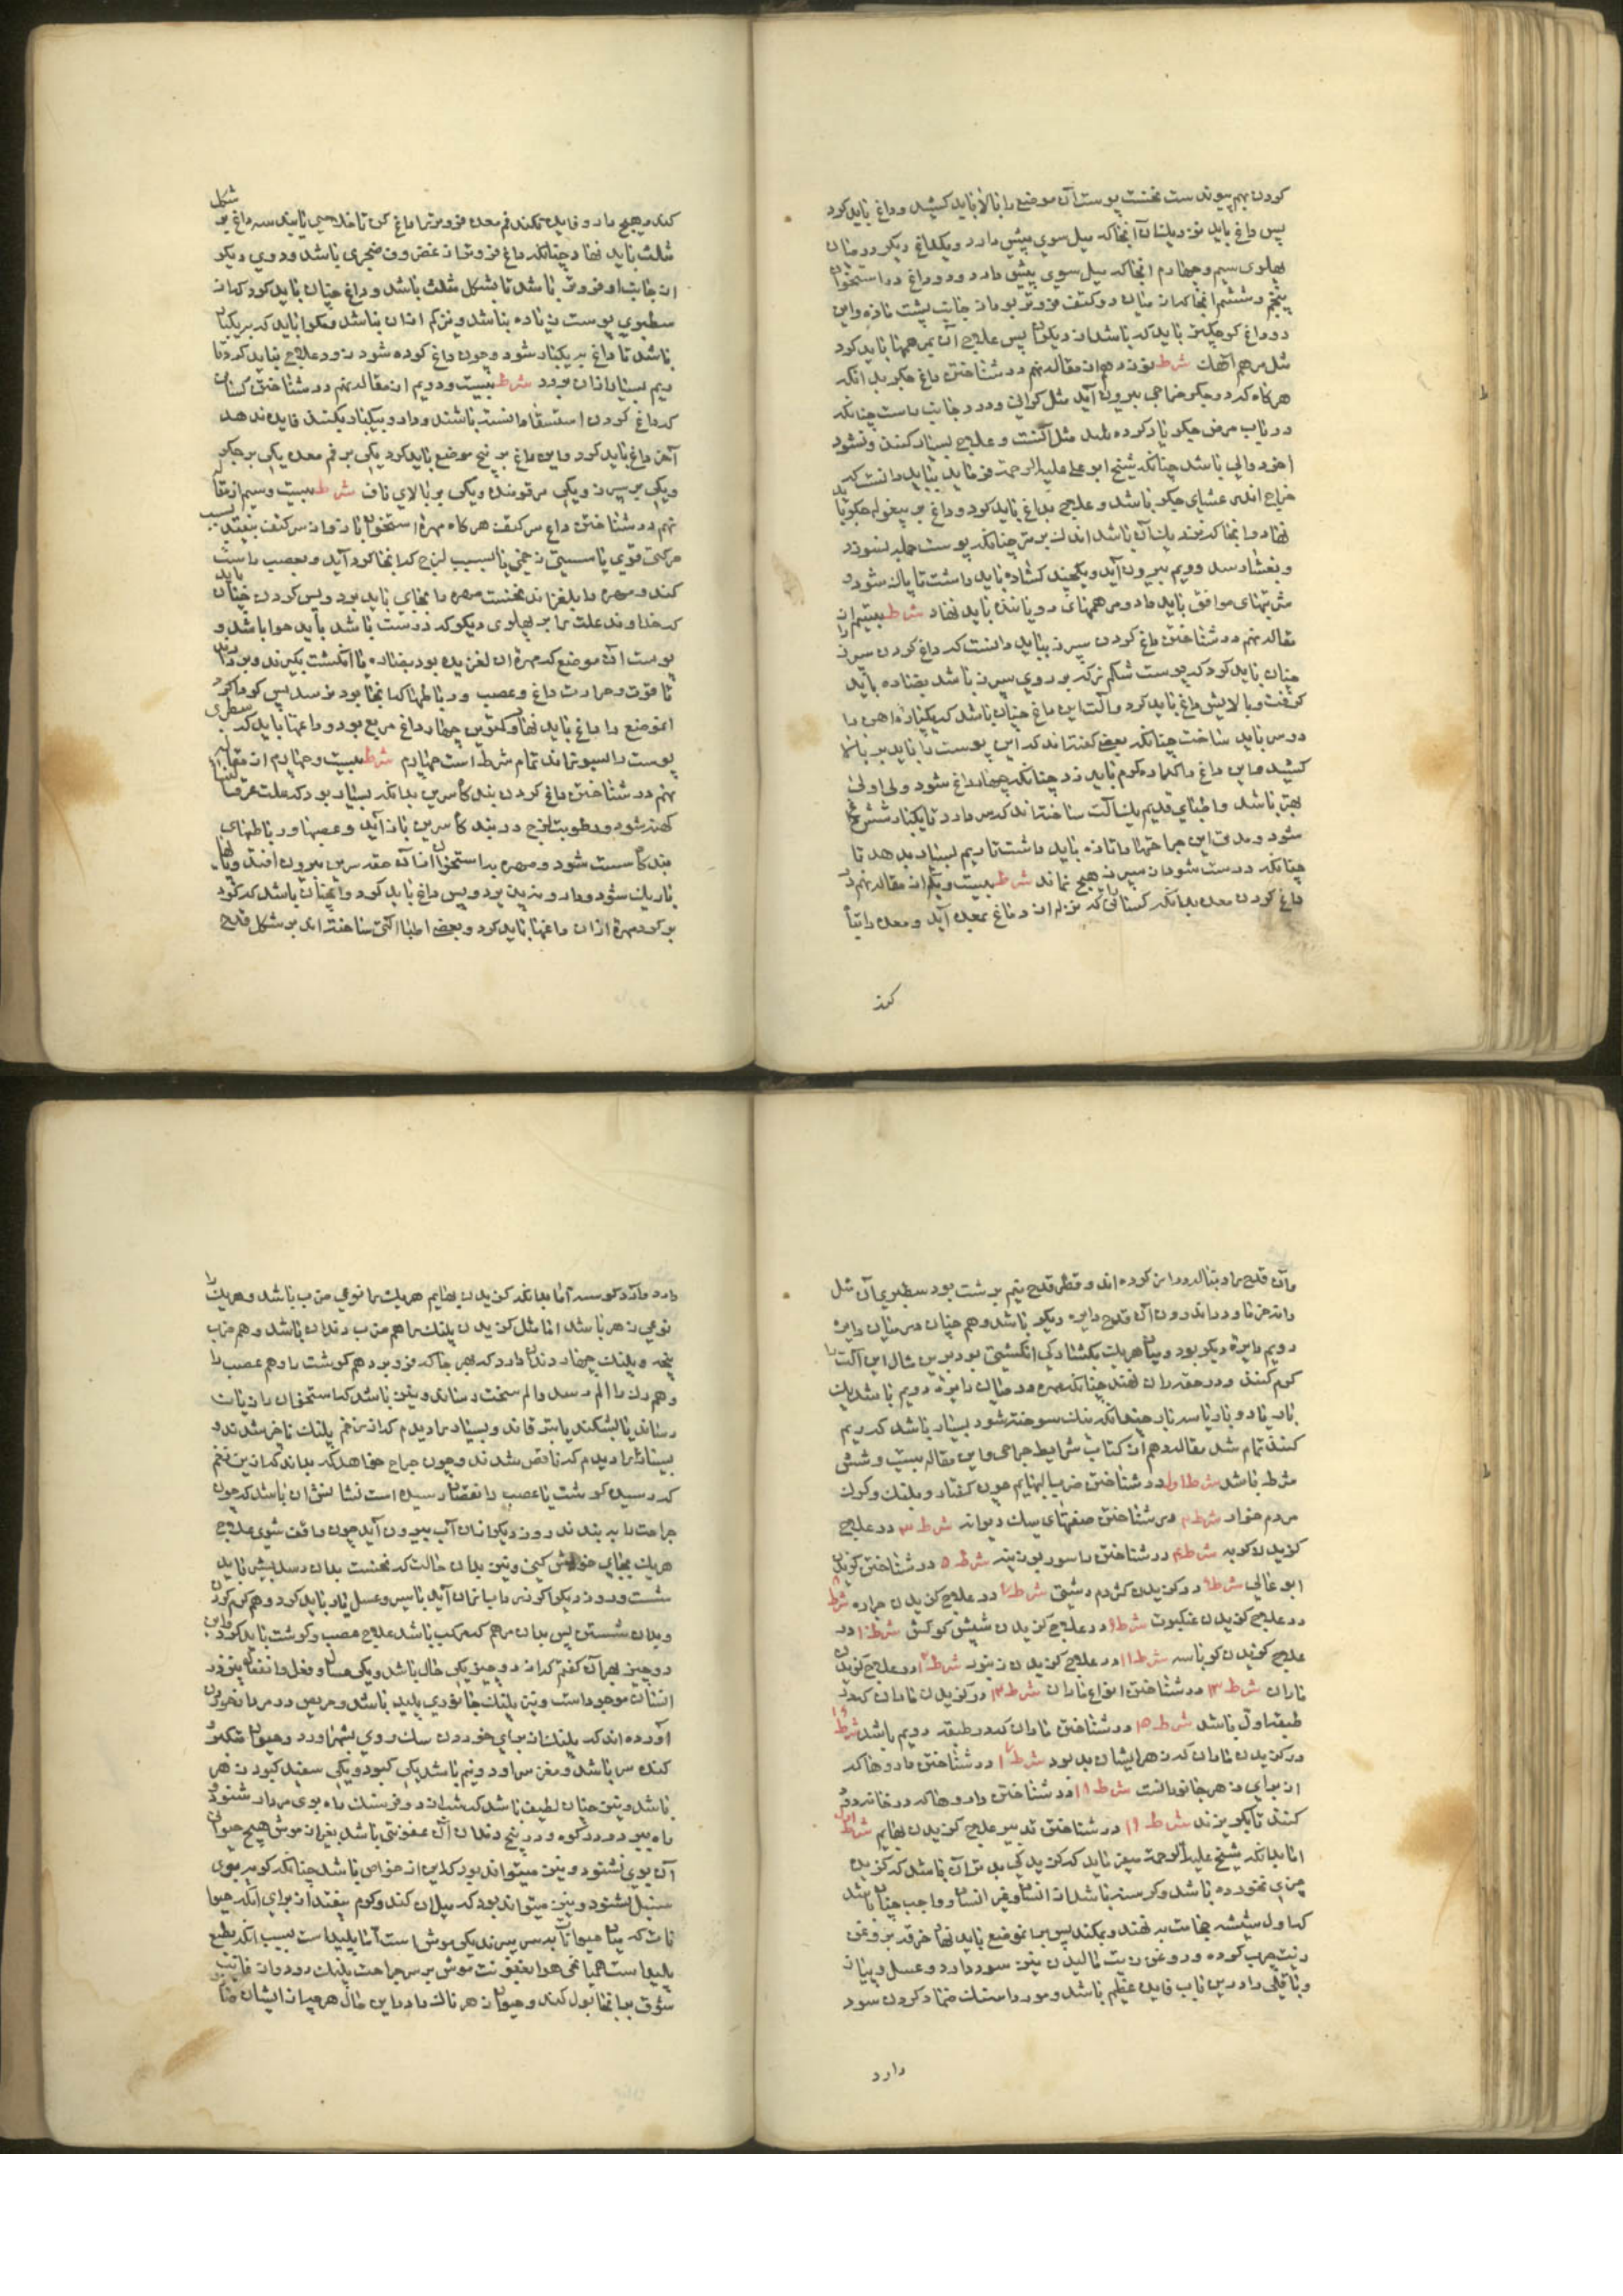 کردن بهم پیوند ست نخست پوست آن موضع را بالا باید کشید و داغ باید کرد
پس داغ باید نزدیک آن آنجا که میل سوی پیش دارد و یک داغ دیکر در میان
پهلوی سیم و چهارم آنجا که میل سوی پیش دارد و دو داغ در استخوان
پنجم و ششم آنجا که از میان دو کتف فروتر بود از جانب پشت مازه و این
دو داغ کوچکتر باید که باشد از دیکران پس علاج آن بمرهمها باید کرد
مثل مرهم آهک شرط نوزدهم از مقاله نهم در شناختن داغ جکر بدانکه
هرکاه که در جکر خراجی بیرون آید مثل کرانی و درد جانب راست چنانکه
در باب مرض جکر یاد کرده شد مثل آنست و علاج بسیار کنند و نشود
شیخ ابو علی علیه الرحمه فرماید بباید دانست که
خراج اندر غشای جکر باشد و علاج بداغ باید کرد و داغ بر پیغوله جکر باید
نهاد و آنجا که نزدیک آن باشد اندک برتر چنانکه پوست جمله بسوزد
و بغشا رسد و ریم بیرون آید و یکچند کشاده باید داشت تا پاک شود و
شربتهای موافق باید داد و مرهمهای رویاننده باید نهاد شرط بیستم از
مقاله نهم در شناختن داغ کردن سپرز بباید دانست که داغ کردن سپرز را
چنان باید کرد که پوست شکم نزد که بر روی سپرز باشد بضناره باید
کرفت و بالایش داغ باید کرد و آلت این داغ چنان باشد که یکپاره آهن را
دو سر باید ساخت چنانکه بعضی کفته‌اند که این پوست را باید بر بالا
کشید و این داغ را یکباره کرم باید زد چنانکه چهار داغ شود ولی اولی
بهتر باشد و اطبای قدیم یک آلت ساخته‌اند که سر دارد تا یکبار شش داغ
شود و مدتی این جراحتها را تازه باید داشت تا ریم بسیار بدهد تا
چنانکه درست شود از سپرز هیچ نماند شرط بیست و یکم از مقاله نهم در
داغ کردن معده بدانکه کسانی که نزله از دماغ بمعده آید و معده را تباه
کند

کند و هیچ دارو فایده نکند فم معده فروتر را داغ کن تا خلاصی یابند سه داغ بر شکل
مثلث باید نهاد چنانکه داغ فروتر از غضروف خنجری باشد و دوی دیکر
از جانب او فروتر باشد تا بشکل مثلث باشد و داغ چنان باید کرد که از
سطبری پوست زیاده نباشد و نیز کم ازان نباشد و مکوا باید که بر یکسان
باشد تا داغ بر یکبار شود و چون داغ کرده شود زود علاج نباید کرد تا
ریم بسیار ازان برود شرط بیست و دویم از مقاله نهم در شناختن کسانی
که داغ کردن استسقا دانسته باشند و دارو بیکبار بکنند فایده ندهد
آخر داغ باید کرد و این داغ بر پنج موضع باید کرد یکی بر فم معده یکی بر جکر
و یکی بر سپرز و یکی بر قومنده و یکی بر بالای ناف شرط بیست و سیم از مقاله
نهم در شناختن داغ سر کتف هرکاه مهره استخوان بازو از سر کتف بیفتد بسبب
حرکتی قوی یا سستی زخمی یا بسبب لزج که آنجا کرد آید و بعصب راست
کند و مهره را بلغزاند نخست مهره را بجای باید برد و پس کردن چنان باید
که خداوند علت را بر پهلوی دیکر که درست باشد باید خوابانید و
پوست آن موضع که مهره ازان لغزیده بود بضناره یا انکشت بکیرند و برد
تا قوت و حرارت داغ و عصب و رباطها که آنجا بود نرسد پس کرداکرد
آن موضع را داغ باید نهاد و کمترین چهار داغ مربع بود و داغها باید که سطری
پوست را بسوزاند تمام شرط است چهارم شرط بیست و چهارم از مقاله
نهم در شناختن داغ کردن بندکاه سرین بدانکه بسیار بود که علت عرق النسا
کهنه شود و رطوبت لزج در بندکاه سرین باز آید و عصبها و رباطهای
بندکاه سست شود و مهره بدان استخوان ازان حقه سرین بیرون افتد و پا
باریک شود و دارو نپذیرد و پس داغ باید کرد و آنچنان باشد که کرد
بر کرد مهره ازان داغها باید کرد و بعضی اطبا آلتی ساخته‌اند بر شکل قدح

و آن قدح را دنباله دراز کرده‌اند و قطر قدح نیم بدست بود سطبری آن مثل
دانه خرما و در اندرون آن قدح دایره دیکر باشد و هم چنان در میان دایره
دویم دایره دیکر بود و میان هر یک بکشادکی انکشتی بود برین مثال این آلت را
کرم کنند و در حقه ران نهند چنانکه مهره در میان دایره دویم باشد یک
بار یا دو بار یا سه بار چندانکه نیک سوخته شود بسیار باشد که ریم
کنند تمام شد مقاله دهم از کتاب شرایط جراحی و این مقاله بیست و شش
شرط باشد شرط اول در شناختن ضرب بهایم چون کفتار و پلنک و کرک
مردم خوار شرط ۲ در شناختن صفتهای سک دیوانه شرط ۳ در علاج
کزیدن کربه شرط ۴ در شناختن راسو بوزینه شرط ۵ در شناختن کزیدن
ابو غالی شرط ۶ در کزیدن کژدم دشتی شرط ۷ در علاج کزیدن جراره شرط ۸
در علاج کزیدن عنکبوت شرط ۹ در علاج کزیدن شپش کوکش شرط ۱۰ در
علاج کزیدن کرباسه شرط ۱۱ در علاج کزیدن زنبور شرط ۱۲ در علاج کزیدن
ماران شرط ۱۳ در شناختن انواع ماران شرط ۱۴ در کزیدن ماران که در
طبقه اول باشد شرط ۱۵ در شناختن ماران که در طبقه دویم باشد شرط ۱۶
در کزیدن ماران که زهر ایشان بد بود شرط ۱۷ در شناختن داروها که
از برای زهر جانورانست شرط ۱۸ در شناختن داروها که در خانه دود
کنند تا بکریزند شرط ۱۹ در شناختن تدبیر علاج کزیدن بهایم شرط اول
اما بدانکه شیخ علیه الرحمه میفرماید که کزیدکی بدتر آن باشد که کزیده
چیزی نخورده باشد و کرسنه باشد از انسان و غیر انسان و واجب چنان باشد
که اول شیشه حجامت بر نهند و بمکند پس بر آن موضع باید نهاد خرقه بروغن
زیت چرب کرده و روغن زیت مالیدن نیز سود دارد و عسل و پیاز
و باقلی را درین باب فایده عظیم باشد و مورد استک ضماد کردن سود
دارد

دارد و آرد کرسنه اما بدانکه کزیدن بهایم هر یک را نوعی ضرب باشد و هر یک را
نوعی زهر باشد اما مثل کزیدن پلنک را هم ضرب دندان باشد و هم ضرب
پنجه و پلنک چهار دندان دارد که بهر جا که فرو برد هم کوشت را و هم عصب را
و هم رک را الم رسد و الم سخت رساند و نیز باشد که استخوان را زیان
رساند یا بشکند یا بترقاند و بسیار را دیدم که از زخم پلنک تاخر شدند و
بسیار را دیدم که ناقص شدند و چون جراح خواهد که بداند که ازین زخم
که رسید کوشت یا عصب را نقصان رسیده است نشانش آن باشد که چون
جراحت را به بندند روز دیکر ازان آب بیرون آید چون واقف شوی علاج
هر یک بجای خویش کنی و نیز بدان حالت که نخست بدان رسد بیش باید
شست و روز دیکر اکر نه راب ازان آید باسپس و عسل تیار باید کرد و هم کرم کردن
و بدان شستن پس بدان مرهم که مرکب باشد علاج عصب و کوشت باید کرد و این
دو چیز بهر آن کفتم که از دو چیز یکی خالی باشد و یکی عسل و فعل و انفعال نیز در
ایشان موجود است و نیز پلنک جانوری پلید باشد و حریص در مردار خوردن
آورده‌اند که پلنک از برای خوردن سک روی بشهر آورد و حیوان متکبر و
کنده سر باشد و مغز سر او دو نیم باشد یکی کبود و یکی سفید کبود زهر
باشد و نیز چنان لطیف باشد که شب از دو فرسنک راه بوی مردار شنود و
راه ببرد در کوه و در بیخ دندان آن عفونتی باشد بغیر از موش هیچ حیوان
آن بوی نشنود و نیز میتواند بود که این از خواص باشد چنانکه کربه بوی
سنبل بشنود و نیز میتواند بود که میلان کند و کرم بیفتد از برای آنکه حیوا
نات که میان حیوانات بد سر بیرند یکی موش است اما پلید است بسبب آنکه بطبع
پلید است همی خواهد بعفونت موش بر سر جراحت پلنک رود و از غایت
شوق بر آنجا بول کند و حیوان زهرناک را درین حال هر چه از ایشان جدا